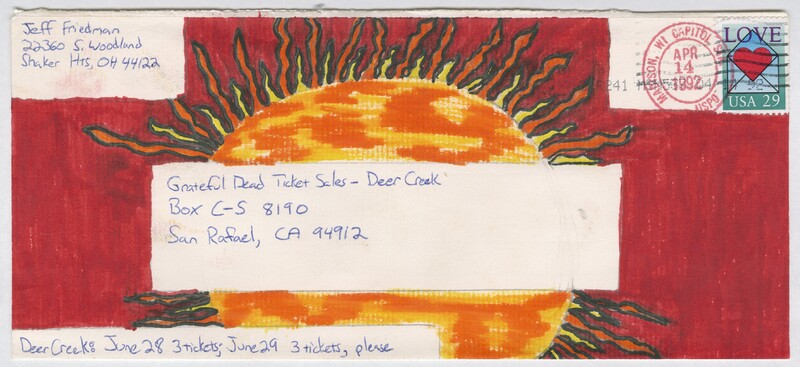 Jeff Friedman
22360 S. Woodland
Shaker Hts, OH 44122
MADISON, WI CAPITOL
APR
14
1992
USPO
LOVE
USA 29
Grateful Dead Ticket Sales - Deer Creek
Box C-S 8190
San Rafael, CA 94912
Deer Creek: June 28 3 tickets; June 29 3 tickets, please